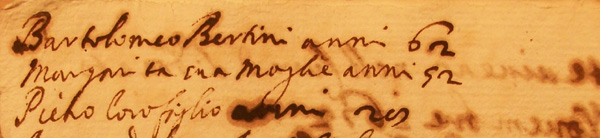 Bartolomeo Bertini anni 62
Margarita sua Moglie anni 52
Pietro loro figlio anni